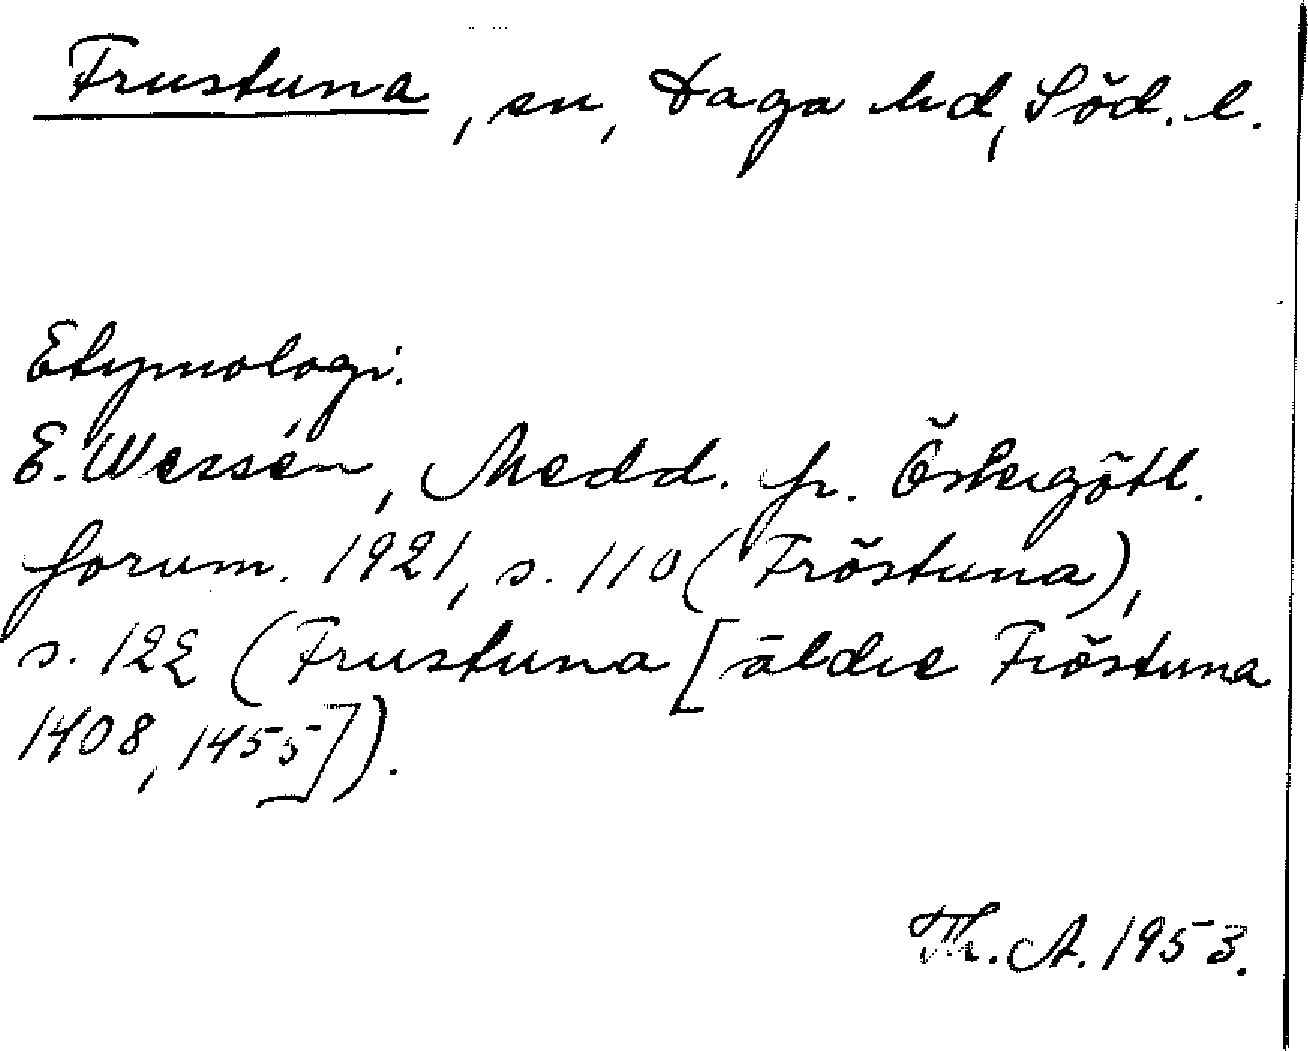 Frustuna, sn, Daga hd, Söd. l.
Etymologi.
E. Wessén, Medd. fr. Östergötl.
fornm. 1921, s. 110 (Fröstuna),
s. 122 (Frustuna [äldre Fröstuna
1408, 1455]).
Th. A. 1953.